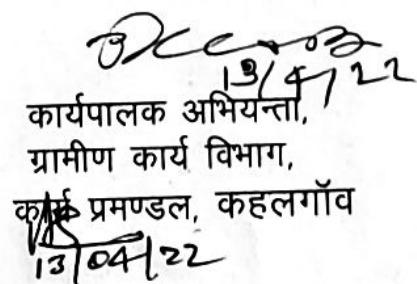 13/4/22
कार्यपालक अभियन्ता,
ग्रामीण कार्य विभाग,
कार्य प्रमण्डल, कहलगॉव
13/04/22